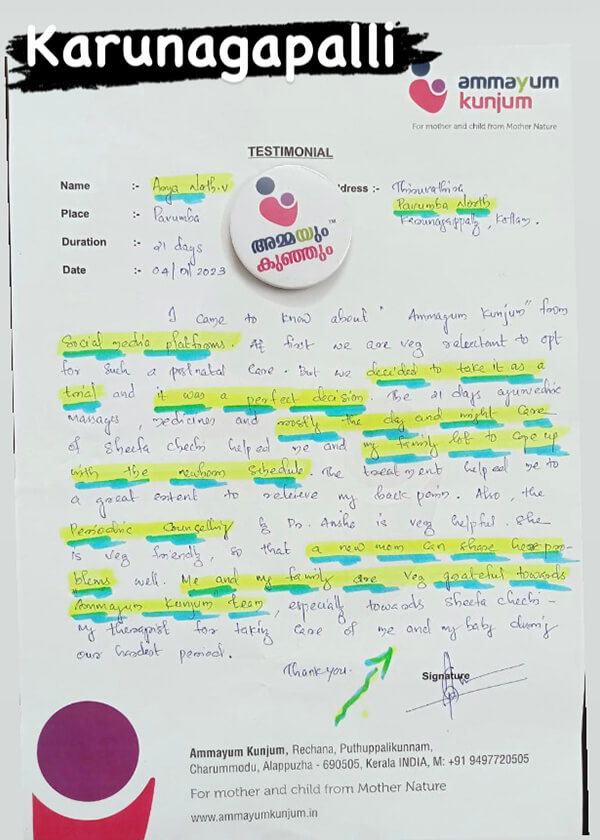 Karunagapalli
ammayum
kunjum
For mother and child from Mother Nature
TESTIMONIAL
Name :- Arya Nath.V
ddress :- Thiruvathira
Parumba North
Karunagappally, Kollam.
Place :- Parumba
Duration :- 21 days
Date :- 04/01/2023
അമ്മയും
കുഞ്ഞും
TM
I came to know about "Ammayum Kunjum" from
Social media platforms. At first we are very reluctant to opt
for such a postnatal care. But we decided to take it as a
trial and it was a perfect decision. The 21 days ayurvedic
massages, medicines and mostly the day and night care
of Sheefa chechi helped me and my family lot to cope up
with the newborn schedule. The treatment helped me to
a great extent to relieve my back pain. Also, the
Periodic Counselling by Dr. Anisha is very helpful. She
is very friendly, so that a new mom can share her pro-
blems well. Me and my family are very grateful towards
Ammayum Kunjum team, especially towards Sheefa chechi -
my therapist for taking care of me and my baby during
our hardest period.
Thank you.
Signature
Ammayum Kunjum, Rechana, Puthuppalikunnam,
Charummodu, Alappuzha - 690505, Kerala INDIA, M: +91 9497720505
For mother and child from Mother Nature
www.ammayumkunjum.in